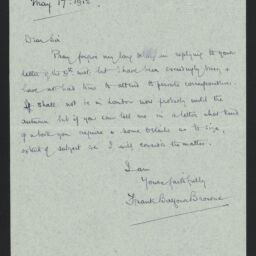 May 17. 1912.
Dear Sir
Pray forgive my long delay in replying to your
letter of the 5th inst. but I have been exceedingly busy &
have not had time to attend to private correspondence.
I shall not be in London now probably until the
autumn but if you can tell me in a letter what kind
of sketch you require & some details as to size,
of subject &c I will consider the matter.
I am
Yours faithfully
Frank Balfour Browne